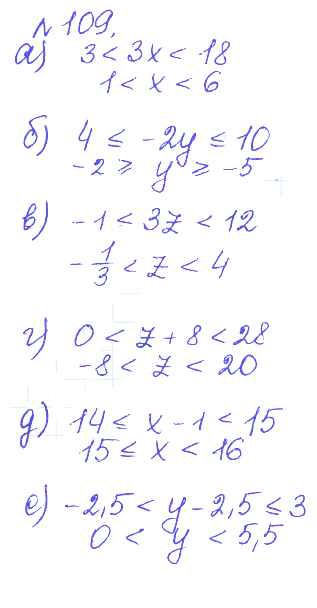 №109.
а) 3 < 3x < 18
1 < x < 6
б) 4 ≤ -2y ≤ 10
-2 ≥ y ≥ -5
в) -1 < 3z < 12
-1/3 < z < 4
г) 0 < z + 8 < 28
-8 < z < 20
д) 14 ≤ x - 1 < 15
15 ≤ x < 16
е) -2,5 < y - 2,5 ≤ 3
0 < y < 5,5